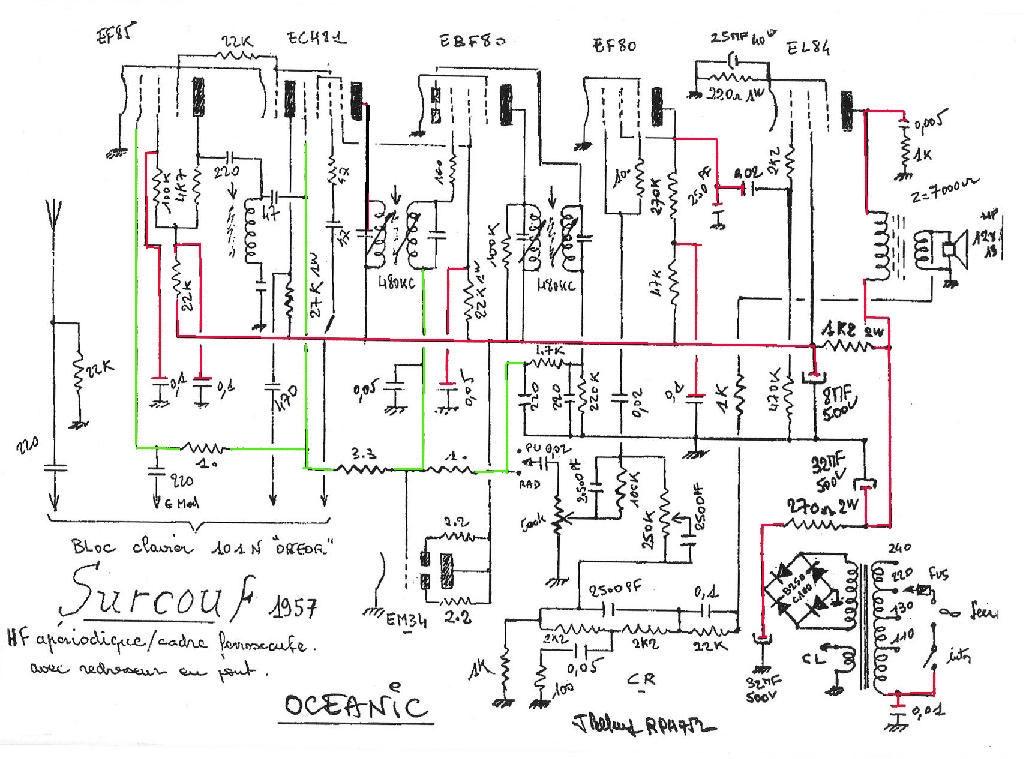 EF85
22K
ECH81
EBF80
EF80
25MF 40V
220Ω 1W
EL84
100K
4K7
220
47
27K 1W
22K
480KC
22K 1W
100K
480KC
270K
47K
250 PF
0,02
2K2
0,005
1K
Z=7000Ω
HP
1K2 2W
22K
0,1
0,1
470
0,05
0,05
1.7K
220
220
220K
0,02
0,1
1K
470K
8MF
500V
220
220
1.
3.3
1.
PU
0,02
RAD
500K
2500PF
100K
250K
2500PF
32MF
500V
270Ω 2W
G Mod
Bloc clavier 101N "OREOR"
2.2
EM34
2.2
Surcouf 1957
HF apériodique/cadre ferroxcube.
avec redresseur en pont.
OCEANIC
1K
2500PF
0,1
2K2
2K2
22K
0,05
100
CR
32MF
500V
B250
C100
CL
240
220
130
110
Fus
inter
0,01